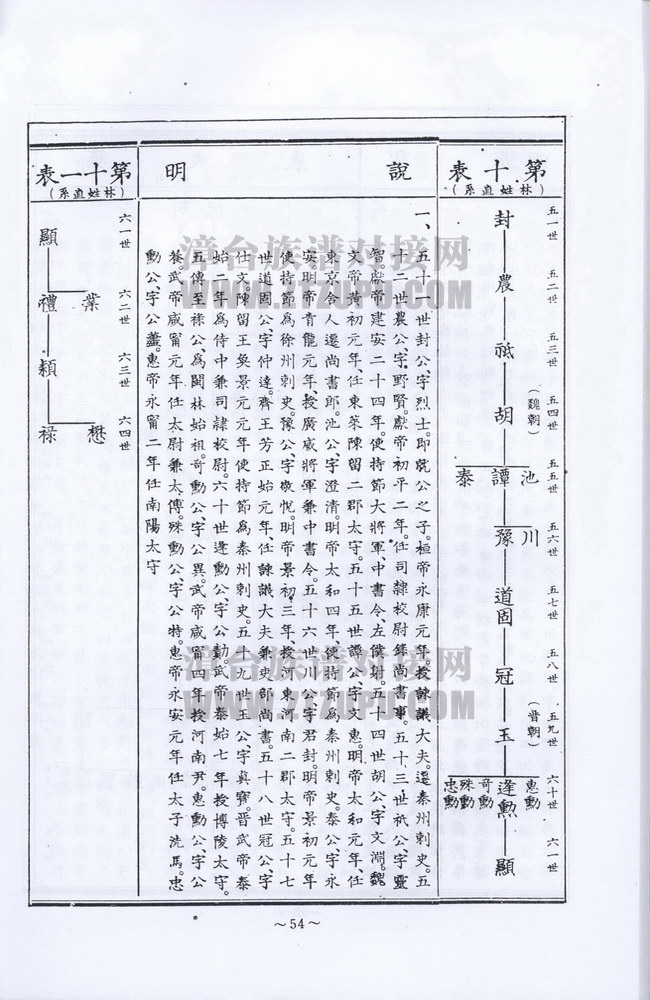 第十表
（林姓直系）
五一世 五二世 五三世 五四世 五五世 五六世 五七世 五八世 五九世 六十世 六一世
（魏朝）
（晉朝）
封 農 祗 胡
池 譚 泰
川 豫
道固 冠 玉
惠勳 逢勳 奇勳 殊勳 忠勳
顯
說明
一、
五十一世封公、字烈士。即就公之子。桓帝永康元年授諫議大夫。遷秦州刺史。五
十二世農公、字野賢。獻帝初平二年。任司隸校尉錄尚書事。五十三世祇公、字靈
智。獻帝建安二十四年。使持節大將軍中書令、左僕射。五十四世胡公、字文淵。魏
文帝黃初元年、任東萊陳留二郡太守。五十五世譚公、字文惠。明帝太和元年、任
東京舍人遷尚書郎。池公、字澄清。明帝太和四年、使持節為秦州刺史。泰公、字永
安。明帝青龍元年、授廣威將軍兼中書令。五十六世川公、字君封。明帝景初元年
使持節為徐州刺史。豫公、字敬悅。明帝景初三年、授河東河南二郡太守。五十七
世道固公、字仲達。齊王芳正始元年、任諫議大夫兼吏部尚書。五十八世冠公、字
仕文。陳留王奐景元元年使持節為秦州刺史。五十九世玉公、字真寶。晉武帝泰
始二年為侍中兼司隸校尉。六十世逢勳公、字公勤。武帝泰始七年授博陵太守。
五傳至祿公、為閩林始祖。奇勳公、字公異。武帝咸甯四年授河南尹。惠勳公、字公
養。武帝咸甯元年任太尉兼太傅。殊勳公、字公特。惠帝永安元年任太子洗馬。忠
勳公、字公藎。惠帝永甯二年任南陽太守
第十一表
（林姓直系）
六一世 六二世 六三世 六四世
顯
業 禮
穎
懋 祿
～54～
漳台族谱对接网
WWW.ZZZUPU.COM
漳台族谱对接网